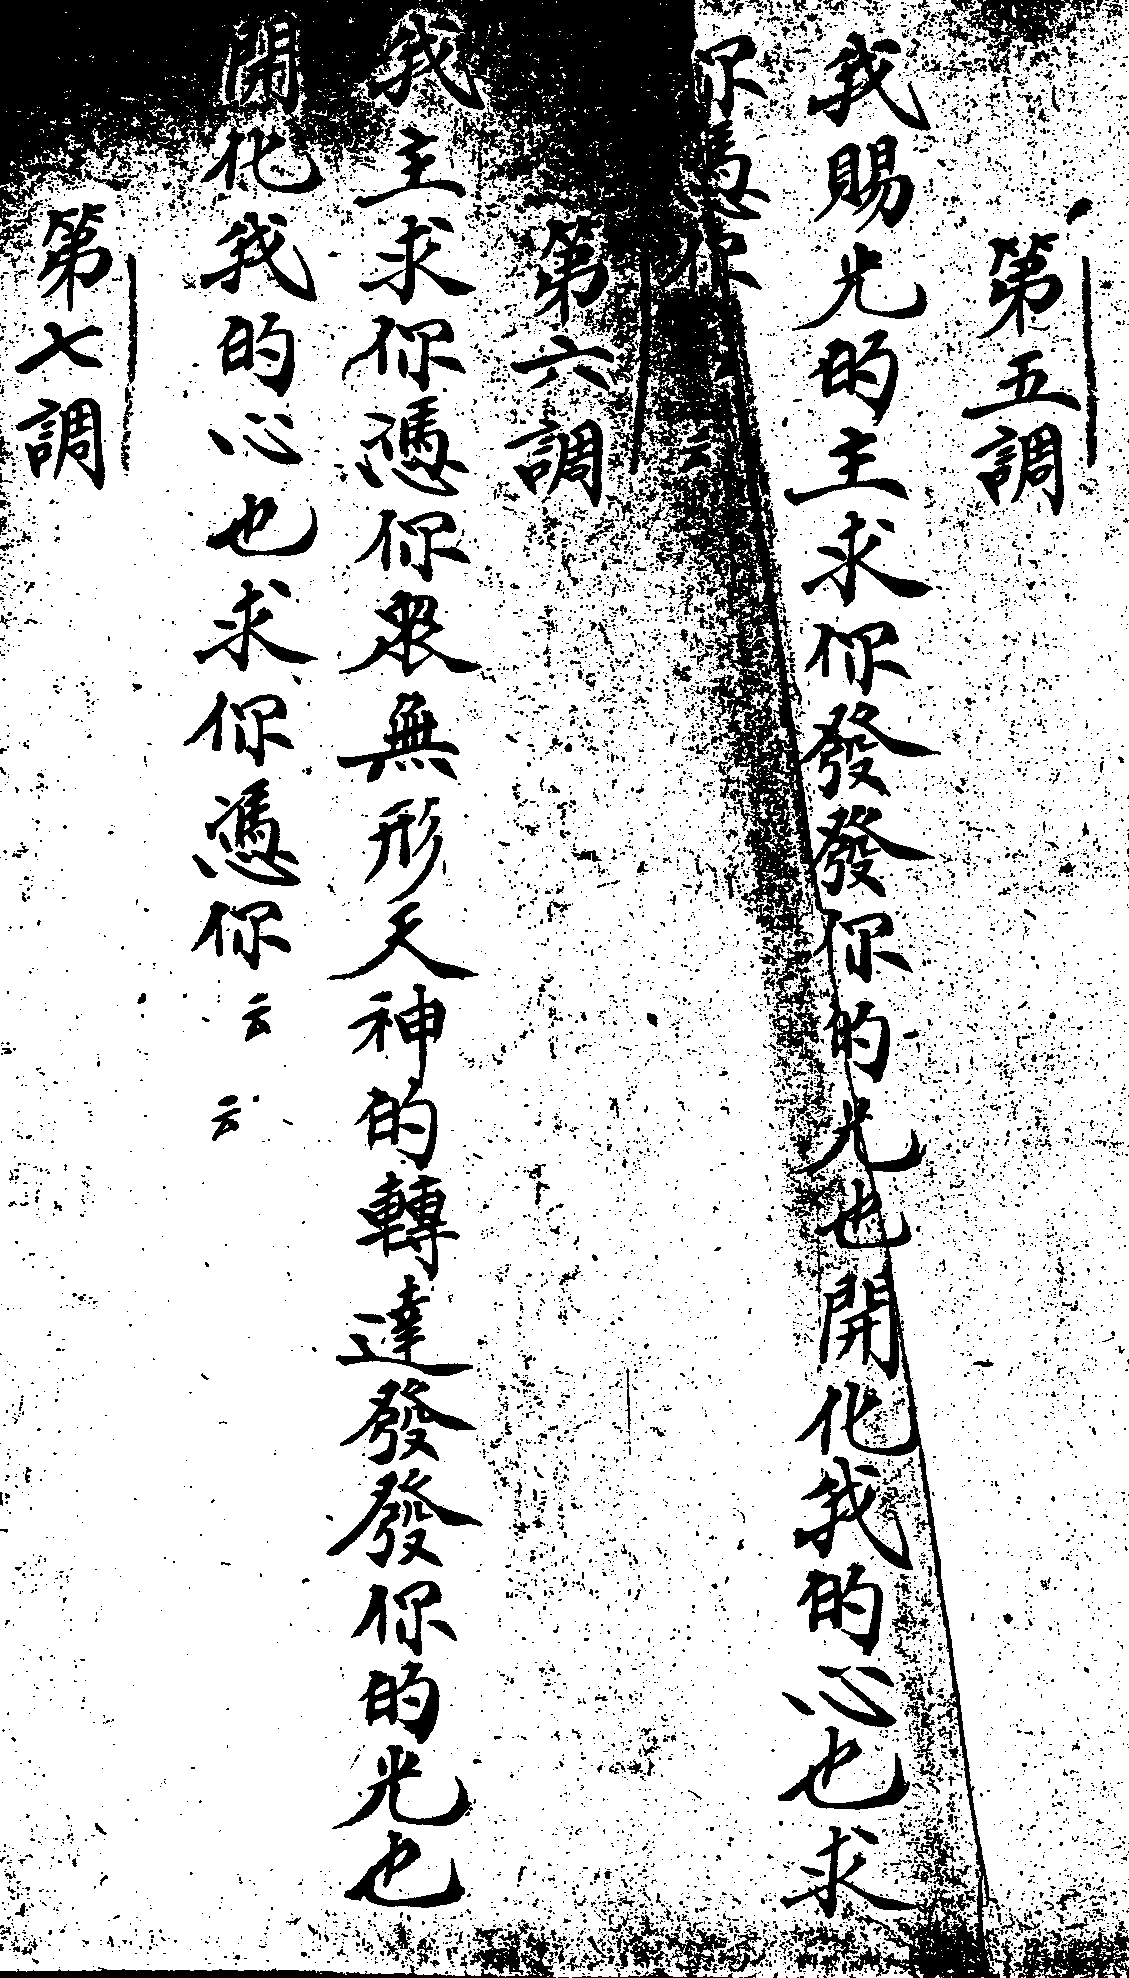 第五調
我賜光的主求你發發你的光也開化我的心也求
你憑你云云
第六調
我主求你憑你衆無形天神的轉達發發你的光也
開化我的心也求你憑你云云
第七調